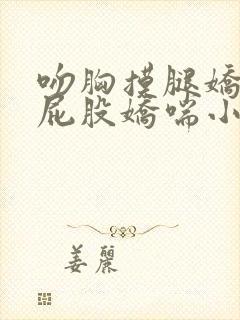 吻胸摸腿娇
屁股娇喘小
姜丽